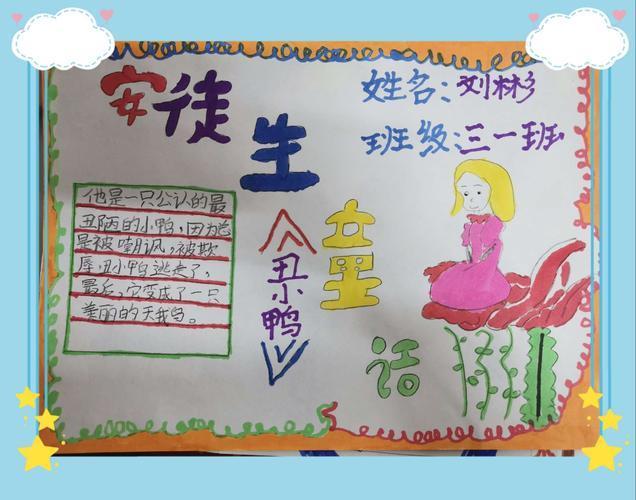 安徒生
童话
姓名:刘彬
班级:三一班
《丑小鸭》
他是一只公认的最
丑陋的小鸭,因为总
是被嘲讽,被欺
辱,丑小鸭逃走了,
最后,它变成了一只
美丽的天鹅。